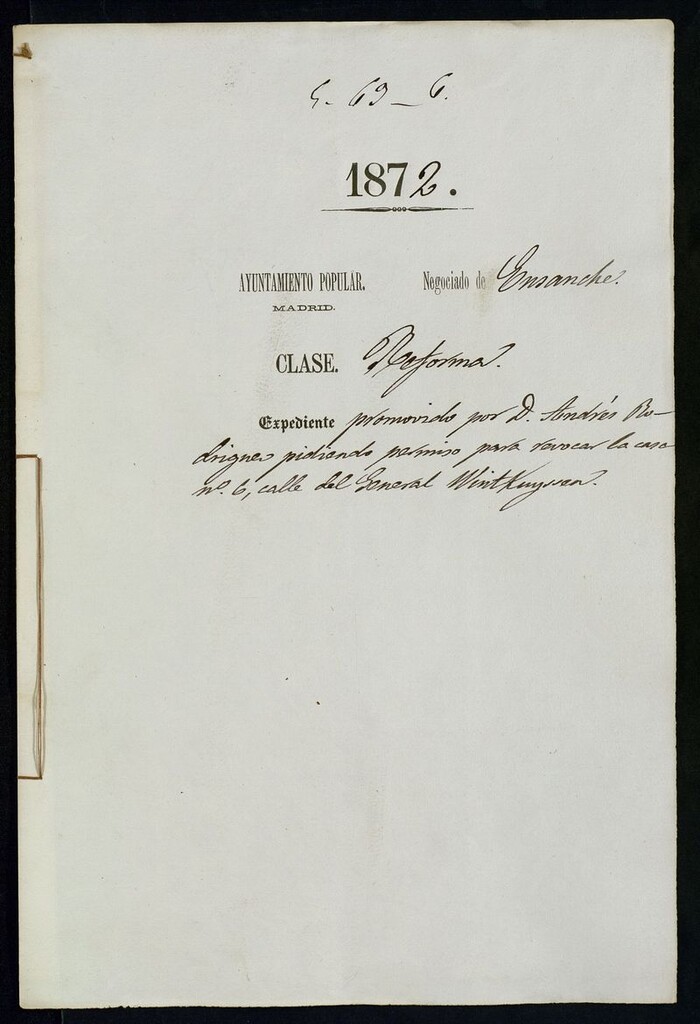 5-69-6.
1872.
AYUNTAMIENTO POPULAR. Negociado de Ensanche.
MADRID.
CLASE. Reforma.
Expediente promovido por D. Andrés Ro-
driguez pidiendo permiso para revocar la casa
nº. 6, calle del General Wint Kuyssen.